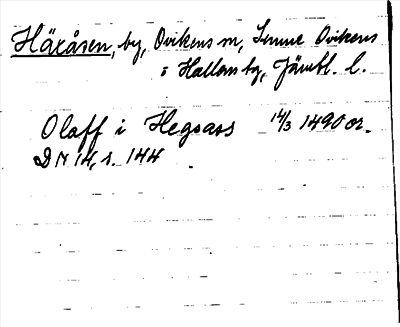 Häxåsen, by, Ovikens sn, Ovikens
i Hallens by, Jämtl. l.
Olaff i Hegsass 14/3 1490 or.
DN 14, s. 144